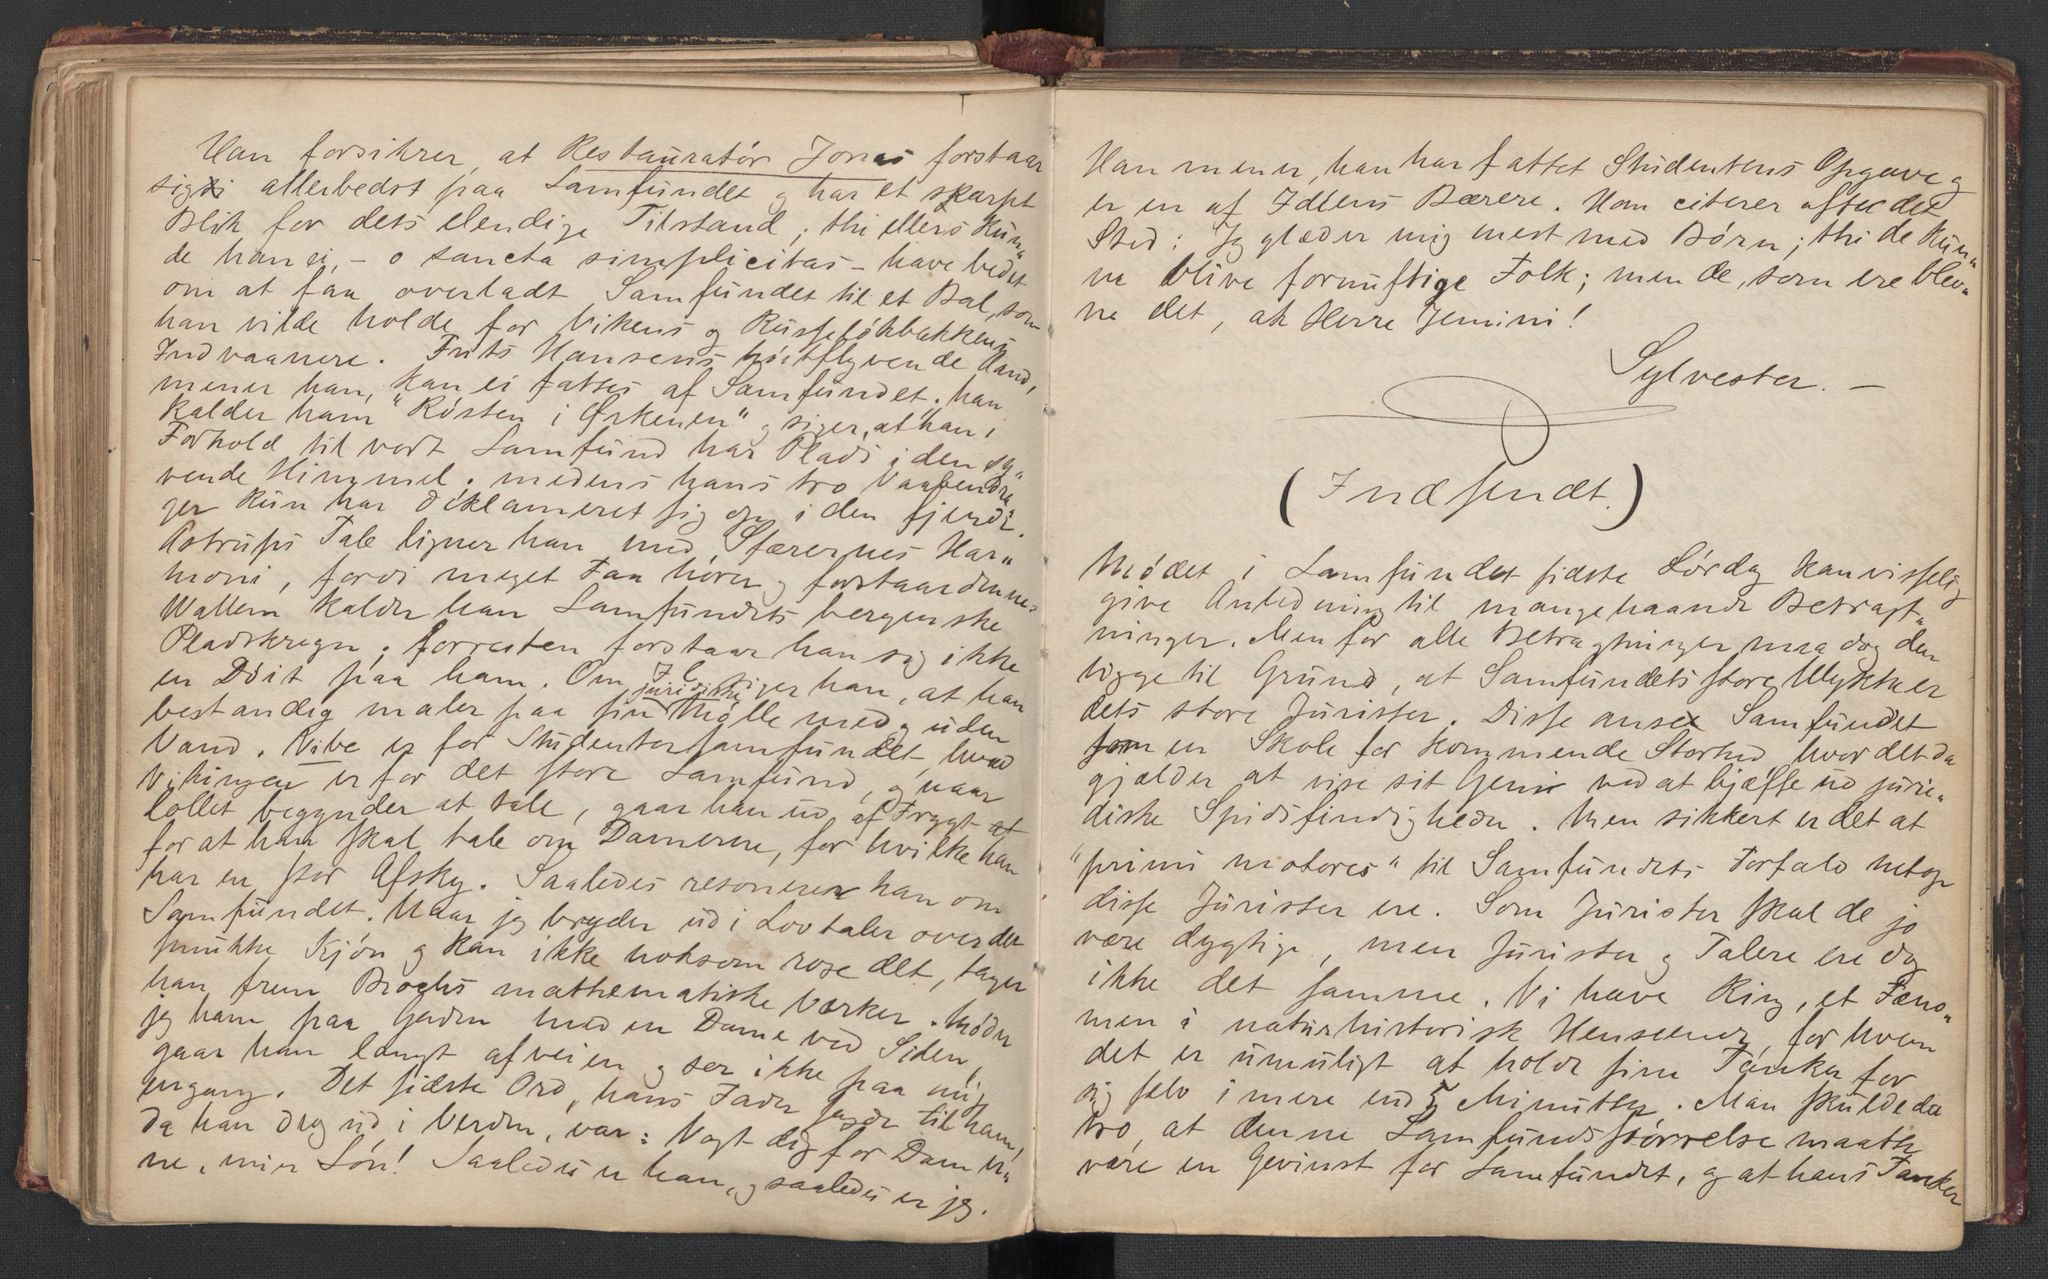 Han forsikrer, at Restauratør Jonas forstaar
sig allerbedst paa Samfundet og har et skarpt
Blik for dets elendige Tilstand; thi ellers kun„
de han ei, – o sancta simplicitas – have bedet
om at faa overladt Samfundet til et Bal, som
han vilde holde for Vikens og Russeløkbakkens
Indvaanere. Frits Hansens høitflyvende Aand,
mener han, kan ei fattes af Samfundet; han
kalder ham "Røsten i Ørkenen" og siger, at han i
Forhold til vort Samfund har Plads i den sy„
vende Himmel, medens hans tro Vaabendra„
ger kun har deklameret sig op i den fjerde.
Astrups Tale ligner han med Sfærernes Har„
moni, fordi meget Faa hører og forstaar denne.
Wallem kalder han Samfundets bergenske
Pladskregn; forresten forstaar han sig ikke
en Døit paa ham. Om siger han, at han
bestandig maler paa sin juridiske Mølle med og uden
Vand. Vibe er for Studentersamfundet, hvad
Vikingen er for det store Samfund, og naar
Collet begynder at tale, gaar han ud af Frygt
for at han skal tale om Damerne, for hvilke han
har en stor Afsky. Saaledes resonerer han om
Samfundet. Naar jeg bryder ud i Lovtaler over det
smukke Kjøn og kan ikke noksom rose det, tager
han frem Brochs mathematiske Værker. Møder
jeg ham paa Gaden med en Dame ved Siden,
gaar han langt af veien og ser ikke paa mig
engang. Det sidste Ord, hans Fader sagde til ham,
da han drog ud i Verden, var: Vogt dig for Damer„
ne, min Søn! Saaledes er han, og saaledes er jeg.
Han mener, han har fattet Studentens Opgave og
er en af Ideens Bærere. Han citerer ofte det
Sted: Jeg glæder mig mest med Børn; thi de kun„
ne blive fornuftige Folk; men de, som ere blev„
ne det, ak Herre Jemini!
Sylvester. –
(Indsendt.)
Mødet i Samfundet sidste Lørdag kan visselig
give Anledning til mangehaande Betragt„
ninger. Men for alle Betragtninger maa dog den
ligge til Grund, at Samfundets store Ulykke er
dets store Jurister. Disse anse Samfundet
som en Skole for kommende Storhed, hvor det da
gjælder at vise sit Geni ved at bjæffe ud juri„
diske Spidsfindigheder. Men sikkert er det at
"primi motores" til Samfundets Forfald netop
disse Jurister ere. Som Jurister skal de jo
være dygtige, men Jurister og Talere ere dog
ikke det samme. Vi have Ring, et Fæno„
men i naturhistorisk Henseende, for hvem
det er umuligt at holde sine Tanker for
sig selv i mere end 5 Minutter. Man skulde da
tro, at denne Samfundsstørrelse maatte
være en Gevinst for Samfundet, og at hans Tanker